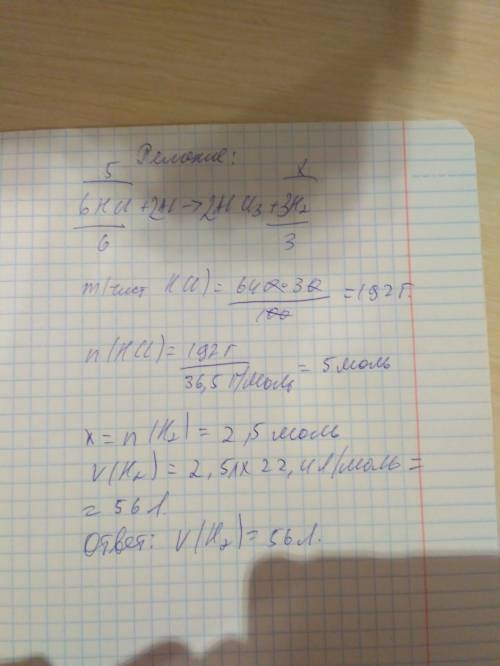 Решение:
5 x
6HCl + 2Al → 2AlCl3 + 3H2
6 3
m(чист HCl) = 640·30 / 100 = 192 г.
n(HCl) = 192 г / 36,5 г/моль = 5 моль
x = n(H2) = 2,5 моль
V(H2) = 2,5 x 22,4 л/моль =
= 56 л.
Ответ: V(H2) = 56 л.